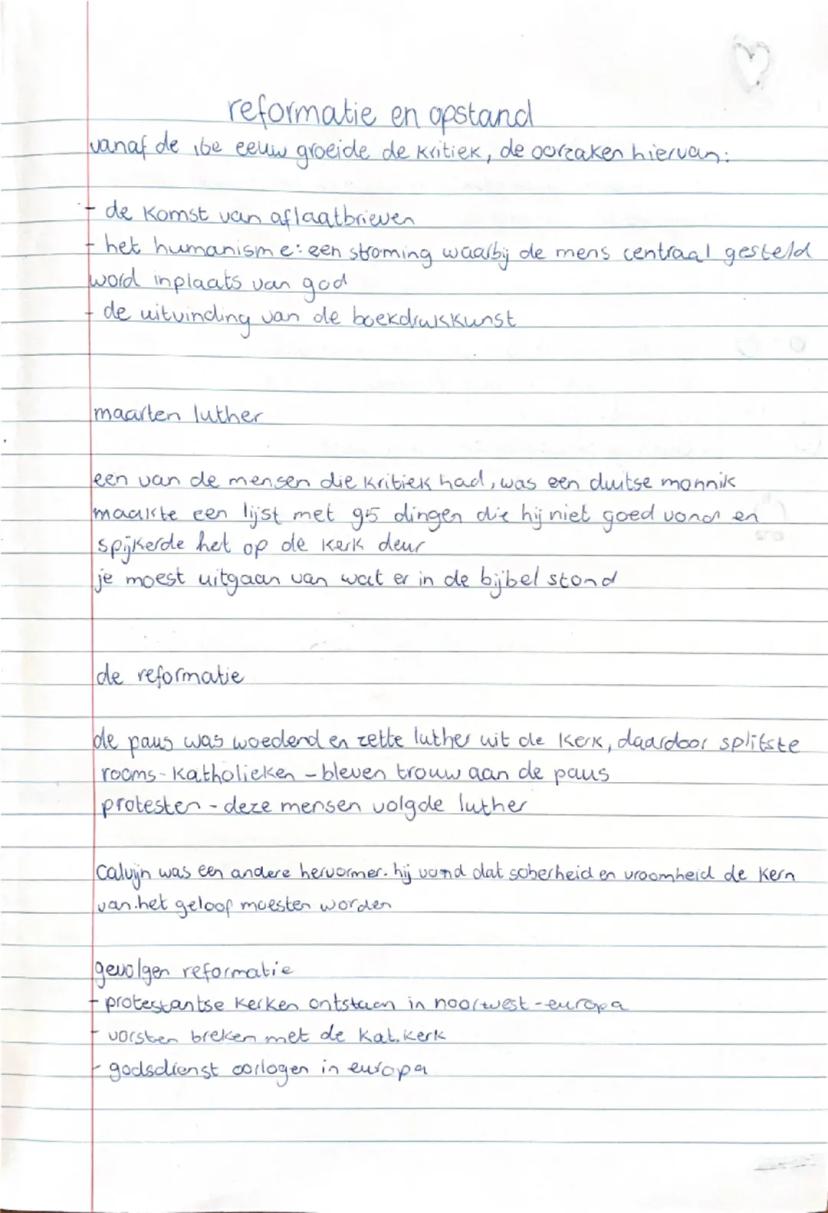 reformatie en opstand
vanaf de 16e eeuw groeide de kritiek, de oorzaken hiervan:
- de komst van aflaatbrieven
- het humanisme: een stroming waarbij de mens centraal gesteld
word inplaats van god
- de uitvinding van de boekdrukkunst
maarten luther
een van de mensen die kritiek had, was een duitse monnik
maakte een lijst met 95 dingen die hij niet goed vond en
spijkerde het op de kerk deur
je moest uitgaan van wat er in de bijbel stond
de reformatie
de paus was woedend en zette luther uit de kerk, daardoor splitste
rooms-katholieken - bleven trouw aan de paus
protesten - deze mensen volgde luther
Calvijn was een andere hervormer. hij vond dat soberheid en vroomheid de kern
van het geloof moesten worden
gevolgen reformatie
- protestantse kerken ontstaan in noortwest-europa
- vorsten breken met de kat. kerk
- godsdienst oorlogen in europa